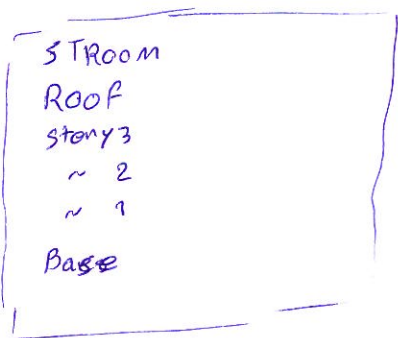 STROOM
ROOF
story3
~ 2
~ 1
Base